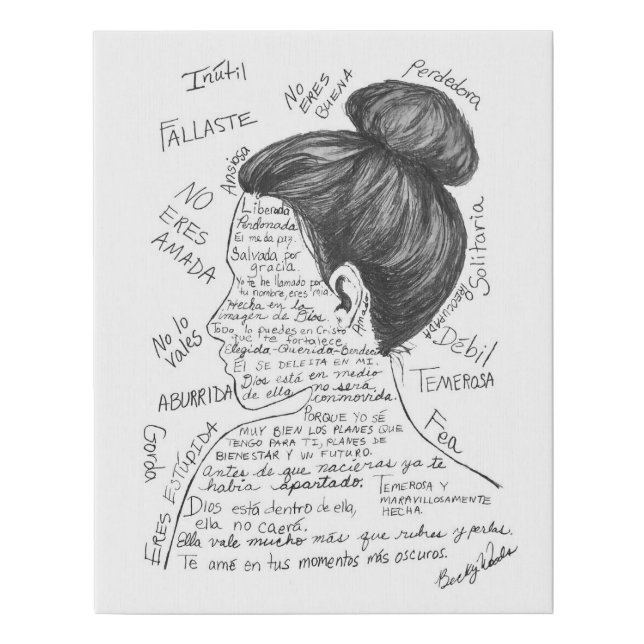 Inútil
NO
ERES
BUENA
Perdedora
FALLASTE
Ansiosa
NO
ERES
AMADA
Solitaria
PREOCUPADA
Débil
TEMEROSA
Fea
No lo
vales
ABURRIDA
Gorda
ERES ESTÚPIDA
Liberada
Perdonada
Él me da paz.
Salvada por
gracia.
Yo te he llamado por
tu nombre, eres mía.
Hecha en la
imagen de Dios.
Todo lo puedes en Cristo
que te fortalece
Elegida-Querida-Bendecida
ÉL SE DELEITA EN MI.
Dios está en medio
de ella, no será
conmovida.
Amada
PORQUE YO SÉ
MUY BIEN LOS PLANES QUE
TENGO PARA TI, PLANES DE
BIENESTAR Y UN FUTURO.
Antes de que nacieras ya te
había apartado.
TEMEROSA Y
MARAVILLOSAMENTE
HECHA.
Dios está dentro de ella,
ella no caerá.
Ella vale mucho más que rubies y perlas.
Te amé en tus momentos más oscuros.
Becky Woods